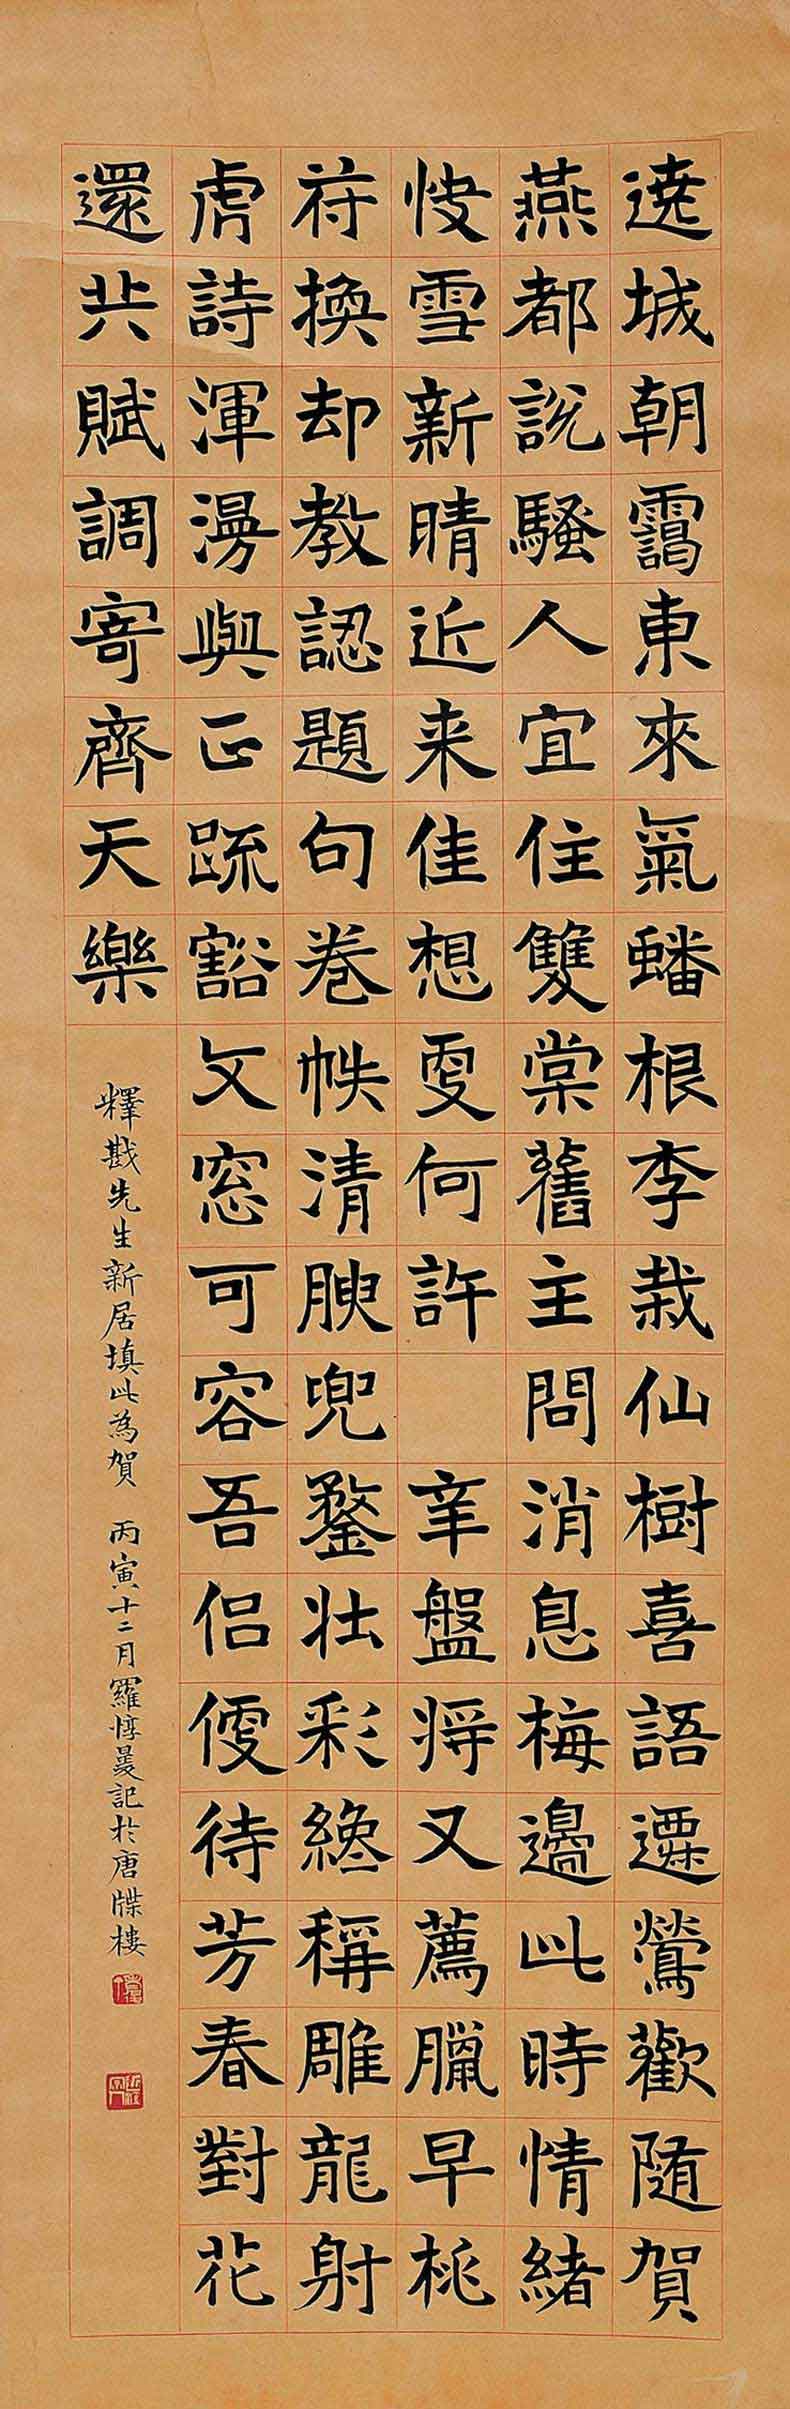 遶城朝靄東來氣蟠根李栽仙樹喜語遷鶯歡隨賀
燕都說騷人宜住雙棠舊主問消息梅邊此時情緒
快雪新晴近来佳想更何許 辛盤將又薦臘早桃
符換却教認題句卷帙清腴兜鍪壯彩總稱雕龍射
虎詩渾漫與正疏豁文窓可容吾侶便待芳春對花
還共賦調寄齊天樂
釋戡先生新居填此為賀 丙寅十二月羅惇曧記於唐牒樓